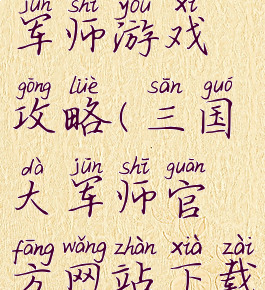 jūn shī yóu xì
军师游戏
gōng lüè sān guó
攻略(三国
dà jūn shī guān
大军师官
fāng wǎng zhàn xià zài
方网站下载